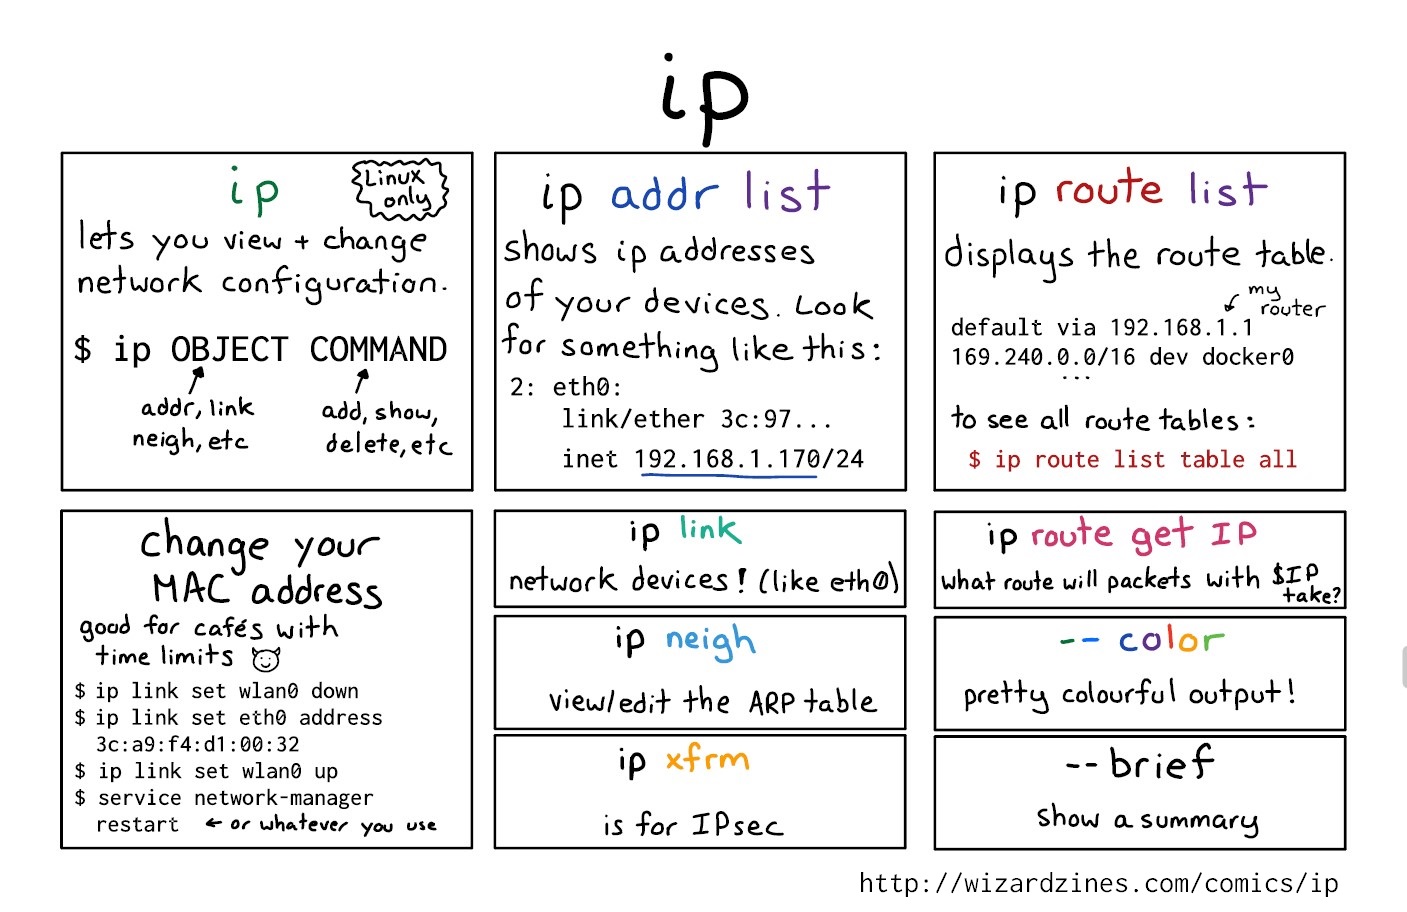 ip
ip
Linux
only
lets you view + change
network configuration.
$ ip OBJECT COMMAND
addr, link
neigh, etc
add, show,
delete, etc
ip addr list
shows ip addresses
of your devices. Look
for something like this:
2: eth0:
link/ether 3c:97...
inet 192.168.1.170/24
ip route list
displays the route table.
my
router
default via 192.168.1.1
169.240.0.0/16 dev docker0
...
to see all route tables:
$ ip route list table all
change your
MAC address
good for cafés with
time limits
$ ip link set wlan0 down
$ ip link set eth0 address
3c:a9:f4:d1:00:32
$ ip link set wlan0 up
$ service network-manager
restart ← or whatever you use
ip link
network devices! (like eth0)
ip neigh
view/edit the ARP table
ip xfrm
is for IPsec
ip route get IP
what route will packets with $IP
take?
--color
pretty colourful output!
--brief
show a summary
http://wizardzines.com/comics/ip